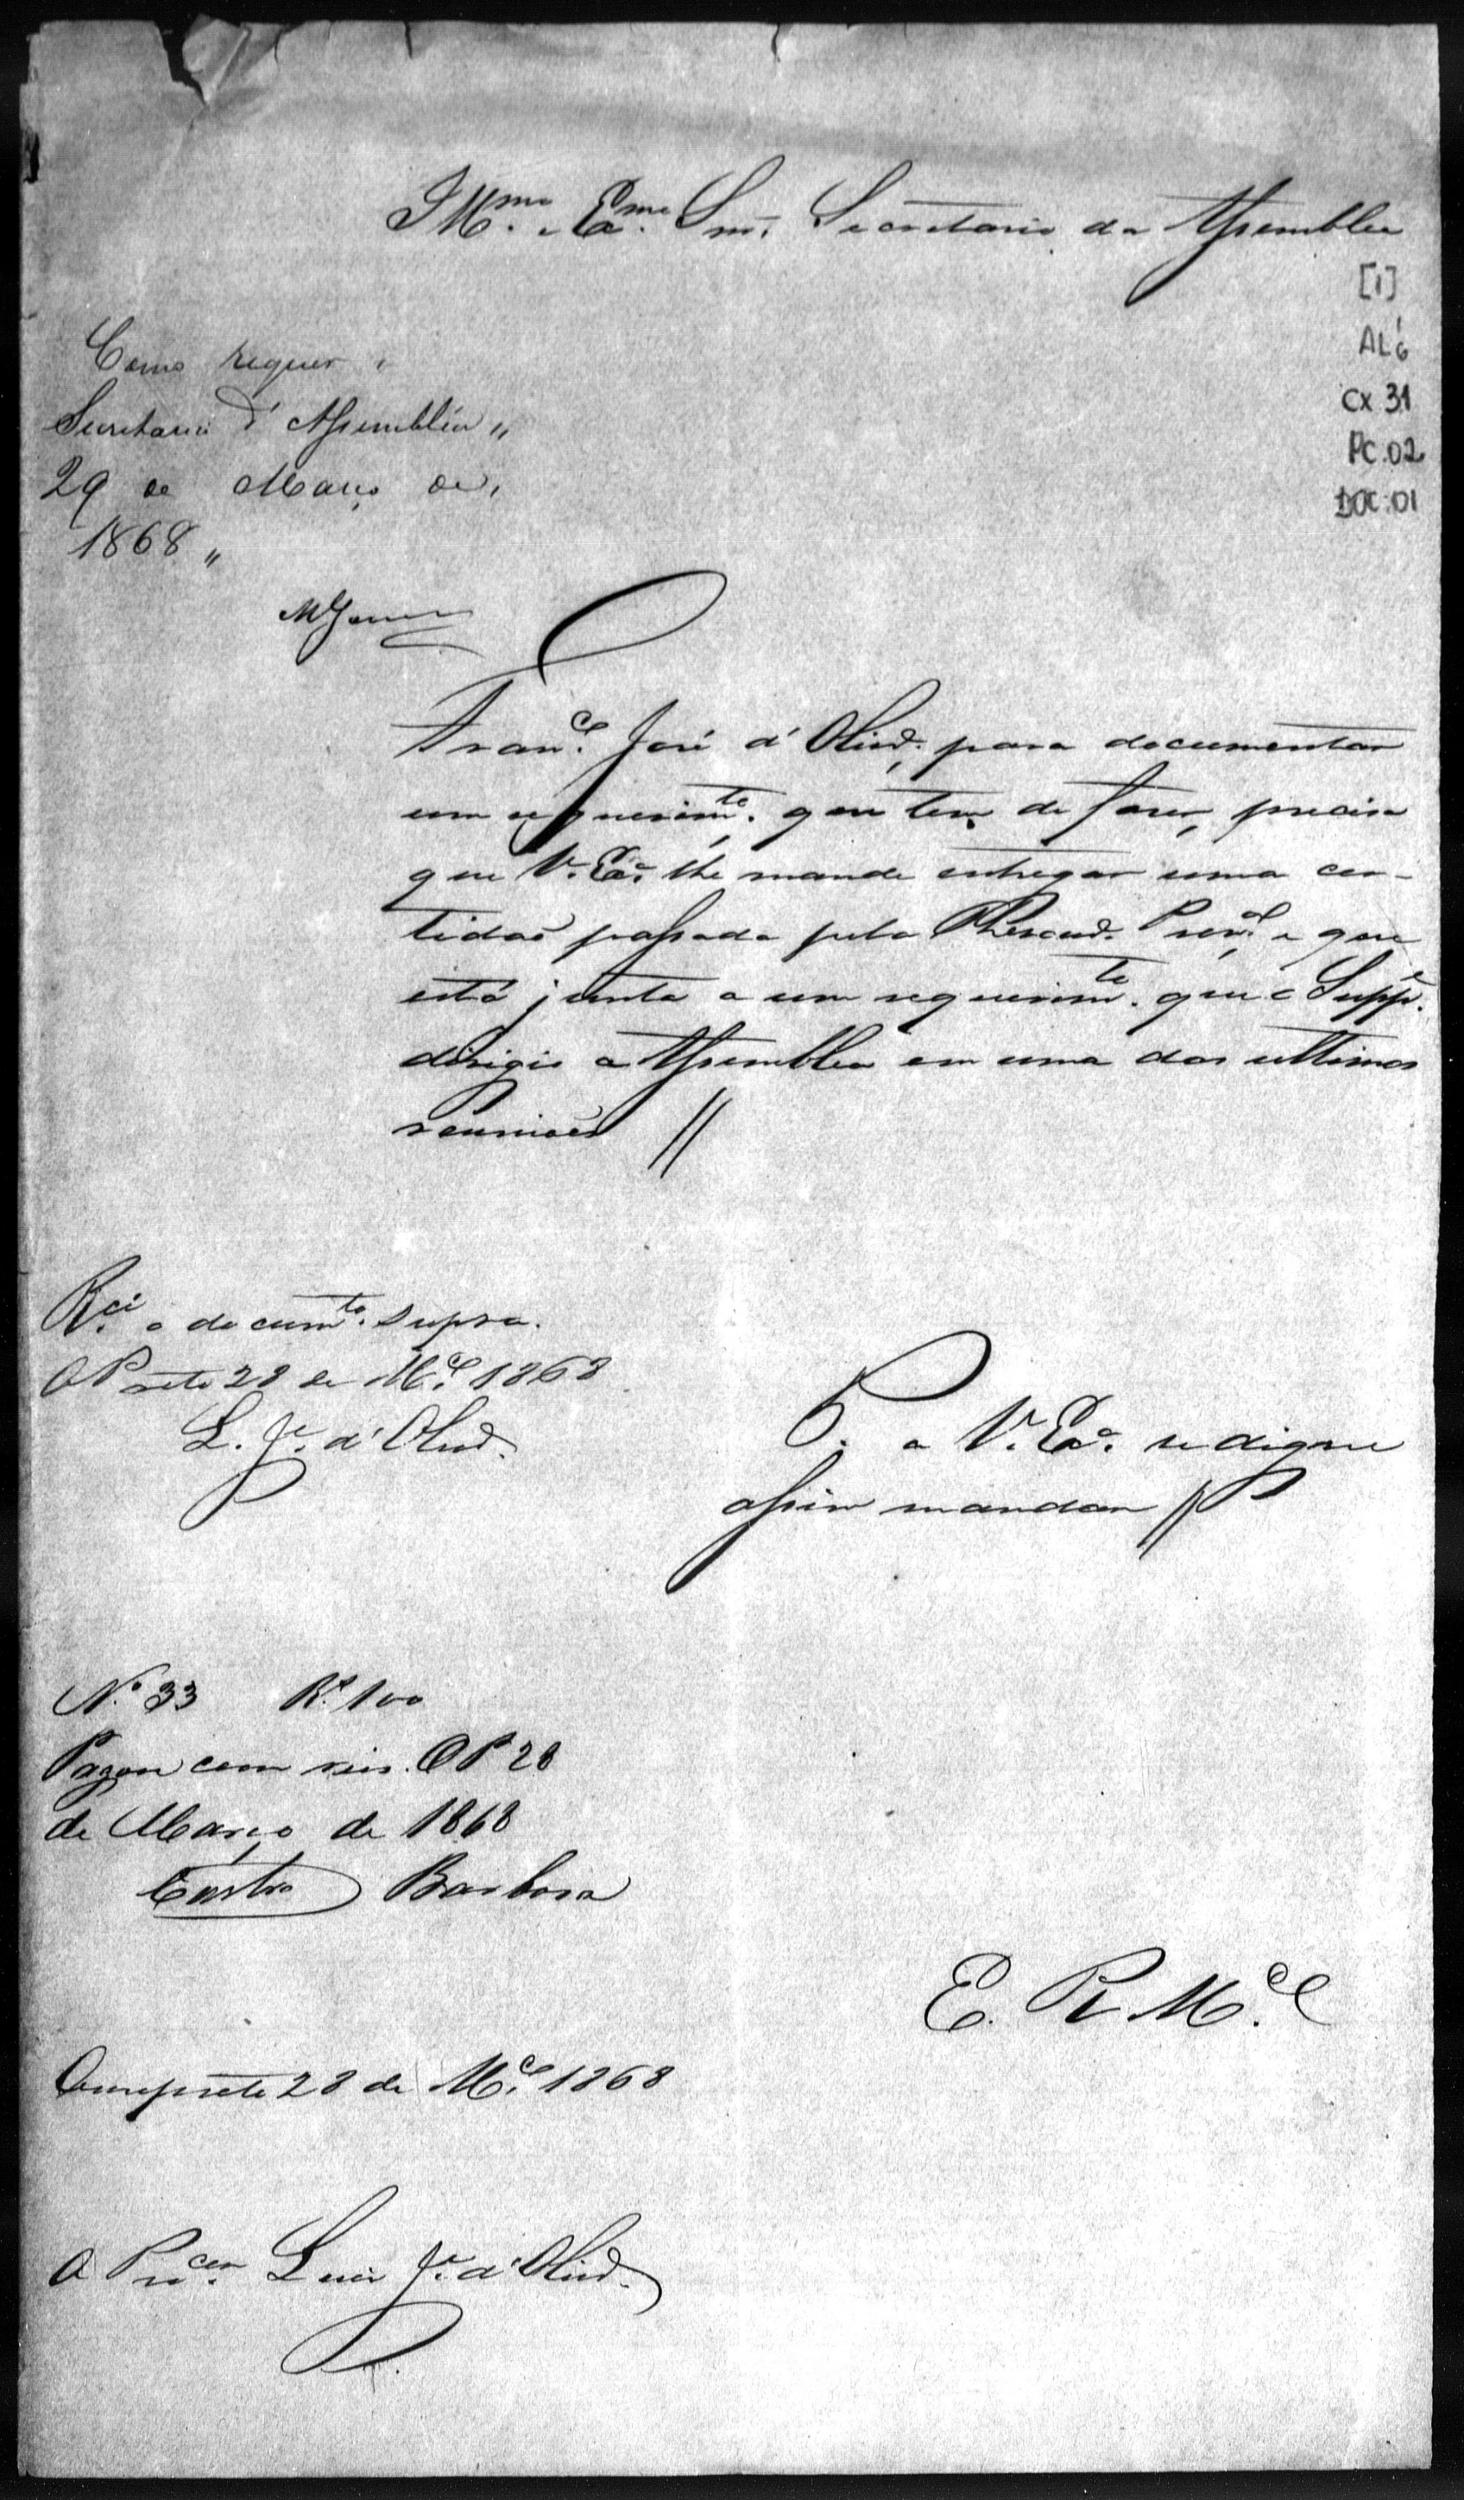 Illmo. e Exmo. Snr. Secretario da Assemblea
[1]
AL 6
CX 31
PC.02
DOC:01
Como requer,
Secretaria d'Assembléa,,
29 de Março de,
1868,,
Franco. José d'Olivra. para documentar
um requerimto. que tem de fazer, precisa
que V. Exa. lhe mande entregar uma cer-
tidaõ passada pela Thesoura. Proval. e que
está junta a um requerimto. que o Suppe.
dirigio a Assemblea em uma das ultimas
reuniões //
Rci. o documto. supra.
OPreto 28 de Mço. 1868
L. Je. d'Olivra.
P. a V. Exa. se digne
assim mandar //
N.o 33 Rs. 100
Pagou cem reis. OP 28
de Março de 1868
Castro Barbosa
E. R. Mce.
Ouropreto 28 de Mço. 1868
O Procor. Luis Je. d'Olivra.